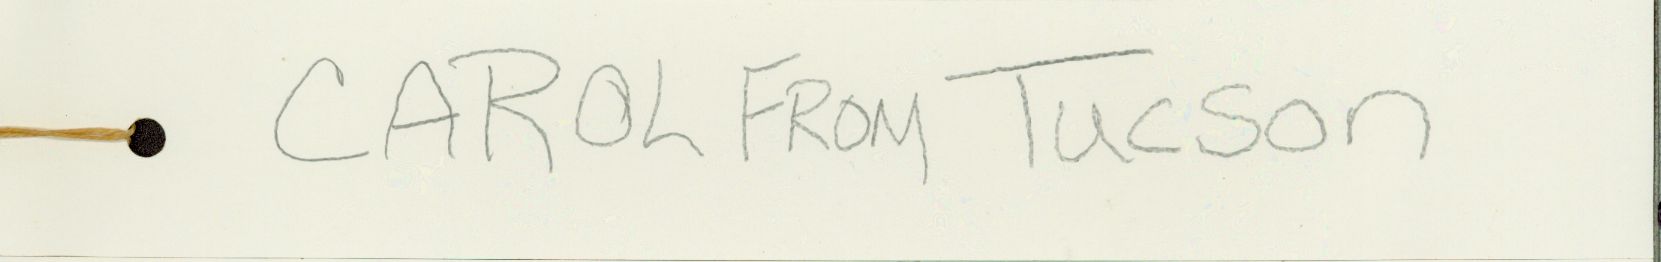 CAROL FROM Tucson